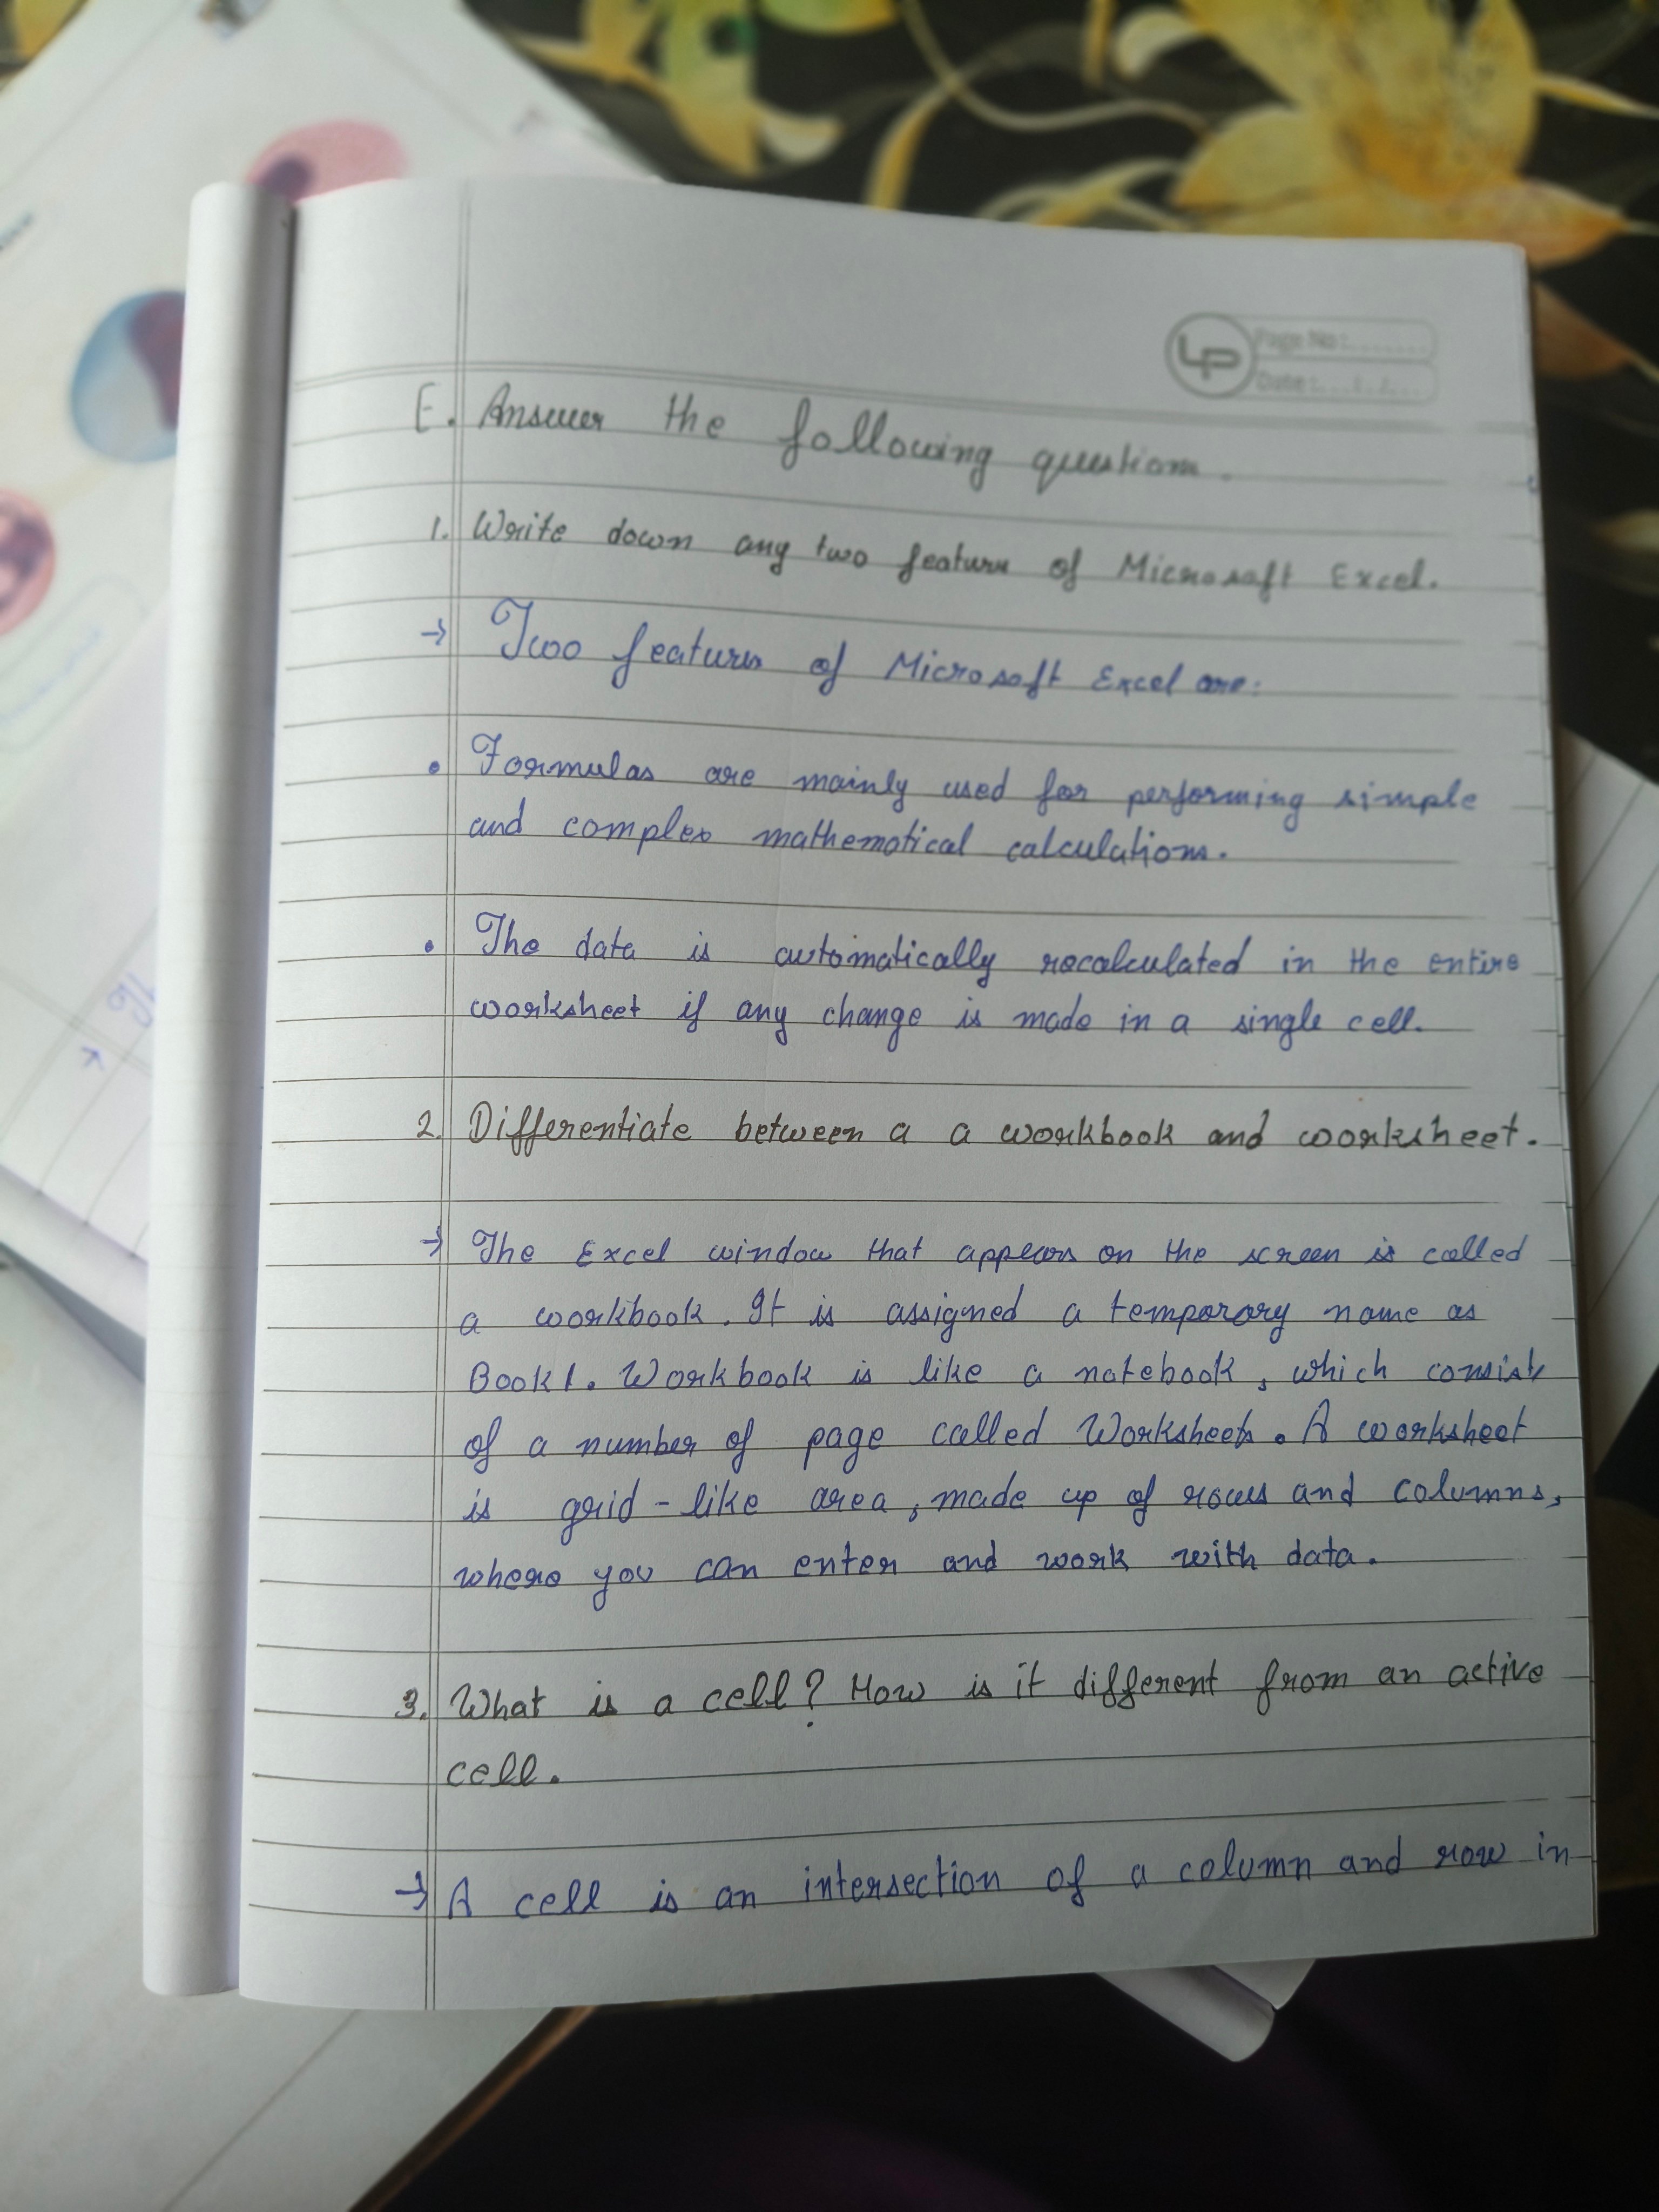 LP Page No:........
Date:.../.../...
E. Answer the following questions.
1. Write down any two features of Microsoft Excel.
→ Two features of Microsoft Excel are:
• Formulas are mainly used for performing simple
and complex mathemotical calculations.
• The data is automatically recalculated in the entire
worksheet if any change is made in a single cell.
2. Differentiate between a a workbook and worksheet.
→ The Excel window that appears on the screen is called
a workbook. It is assigned a temporary name as
Book1. Workbook is like a notebook, which consists
of a number of page called Worksheets. A worksheet
is grid-like area, made up of rows and columns,
where you can enter and work with data.
3. What is a cell? How is it different from an active
cell.
→ A cell is an intersection of a column and row in